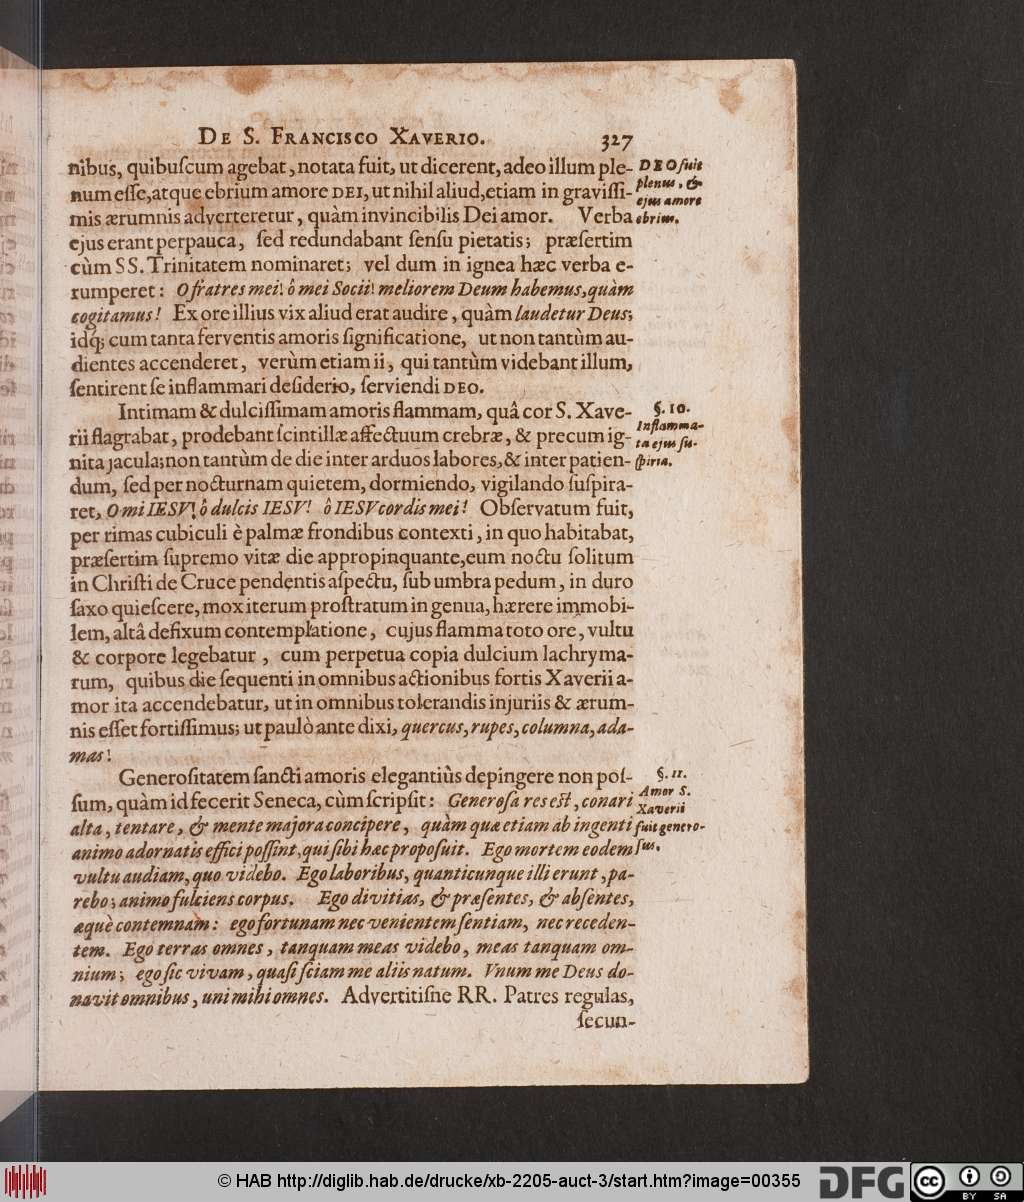 DE S. FRANCISCO XAVERIO. 327
nibus, quibuſcum agebat, notata fuit, ut dicerent, adeo illum ple-
num eſſe, atque ebrium amore DEI, ut nihil aliud, etiam in graviſſi-
mis ærumnis adverteretur, quàm invincibilis Dei amor. Verba
ejus erant perpauca, ſed redundabant ſenſu pietatis; præſertim
cùm SS. Trinitatem nominaret; vel dum in ignea hæc verba e-
rumperet: O fratres mei! ô mei Socii! meliorem Deum habemus, quàm
cogitamus! Ex ore illius vix aliud erat audire, quàm laudetur Deus;
idq́; cum tanta ferventis amoris ſignificatione, ut non tantùm au-
dientes accenderet, verùm etiam ii, qui tantùm videbant illum,
ſentirent ſe inflammari deſiderio, ſerviendi DEO.
DEO fuit
plenus, &
ejus amore
ebrius.
Intimam & dulciſſimam amoris flammam, quâ cor S. Xave-
rii flagrabat, prodebant ſcintillæ affectuum crebræ, & precum ig-
nita jacula; non tantùm de die inter arduos labores, & inter patien-
dum, ſed per nocturnam quietem, dormiendo, vigilando ſuſpira-
ret, O mi IESV! ô dulcis IESV! ô IESV cordis mei! Obſervatum fuit,
per rimas cubiculi è palmæ frondibus contexti, in quo habitabat,
præſertim ſupremo vitæ die appropinquante, eum noctu ſolitum
in Chriſti de Cruce pendentis aſpectu, ſub umbra pedum, in duro
ſaxo quieſcere, mox iterum proſtratum in genua, hærere immobi-
lem, altâ defixum contemplatione, cujus flamma toto ore, vultu
& corpore legebatur, cum perpetua copia dulcium lachryma-
rum, quibus die ſequenti in omnibus actionibus fortis Xaverii a-
mor ita accendebatur, ut in omnibus tolerandis injuriis & ærum-
nis eſſet fortiſſimus; ut paulò ante dixi, quercus, rupes, columna, ada-
mas!
§. 10.
Inflamma-
ta ejus ſu-
ſpiria.
Generoſitatem ſancti amoris elegantiùs depingere non poſ-
ſum, quàm id fecerit Seneca, cùm ſcripſit: Generoſa res eſt, conari
alta, tentare, & mente majora concipere, quàm quæ etiam ab ingenti
animo adornatis effici poſſint, qui ſibi hæc propoſuit. Ego mortem eodem
vultu audiam, quo videbo. Ego laboribus, quanticunque illi erunt, pa-
rebo; animo fulciens corpus. Ego divitias, & præſentes, & abſentes,
æquè contemnam: ego fortunam nec venientem ſentiam, nec receden-
tem. Ego terras omnes, tanquam meas videbo, meas tanquam om-
nium; ego ſic vivam, quaſi ſciam me aliis natum. Vnum me Deus do-
navit omnibus, uni mihi omnes. Advertitiſne RR. Patres regulas,
ſecun-
§. 11.
Amor S.
Xaverii
fuit genero-
ſus.
© HAB http://diglib.hab.de/drucke/xb-2205-auct-3/start.htm?image=00355
DFG
cc BY SA